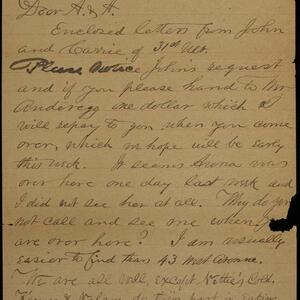 Dear A. & H.
Enclosed letters from John
and Carrie of 31st ult.
Please notice John's request
and if you please hand to Mr
one dollar which I
will repay to you when you come
over, which we hope will be early
this week. It seems was
over here one day last week and
I did not see her at all. Why do you
not call and see one when you
are over here? I am usually
easier to find than 43 West Avenue.
We are all well, except Nettie's Cold.
do their part in eating